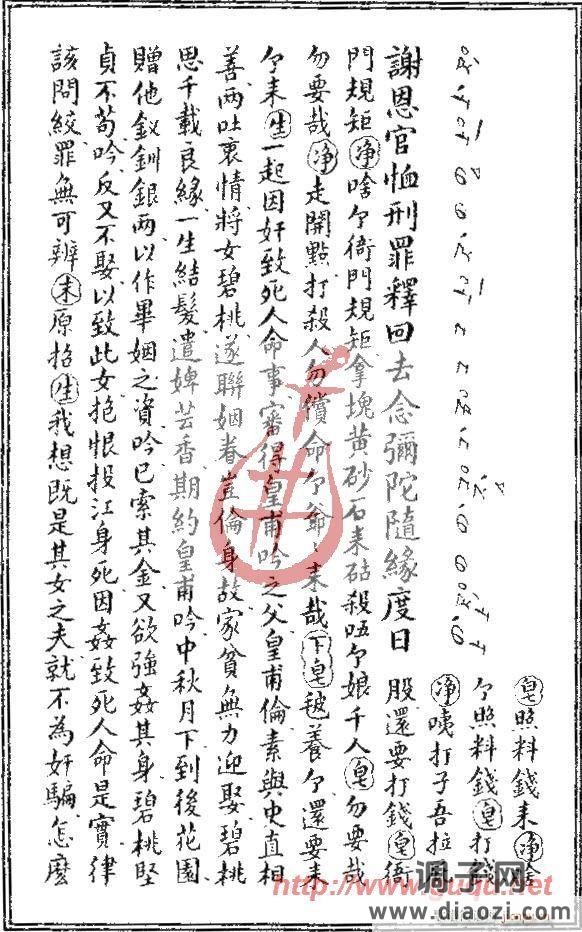 謝恩官恤刑罪釋回去念彌陀隨緣度日
皂照料錢来淨啥
個照料錢皂打錢
淨咦打子吾拉
股還要打錢皂衙
門規矩淨啥個衙門規矩拿塊黄砂石来砧殺唔個娘千人皂勿要哉
勿要哉淨走開點打殺人勿償命個爺〻来哉下皂毬養個還要来
個来生一起因奸致死人命事審得皇甫吟之父皇甫倫素與史直相
善兩吐衷情將女碧桃遂聯姻眷豈倫身故家貧無力迎娶碧桃
思千載良緣一生結髮遣婢芸香期約皇甫吟中秋月下到後花園
贈他釵釧銀两以作畢姻之資吟已索其金又欲強姦其身碧桃堅
貞不苟吟反又不娶以致此女抱恨投江身死因姦致死人命是實律
該問絞罪無可辨末原招生我想既是其女之夫就不為奸騙怎麽
http://www.guqu.net
调子网
www.diaozi.com